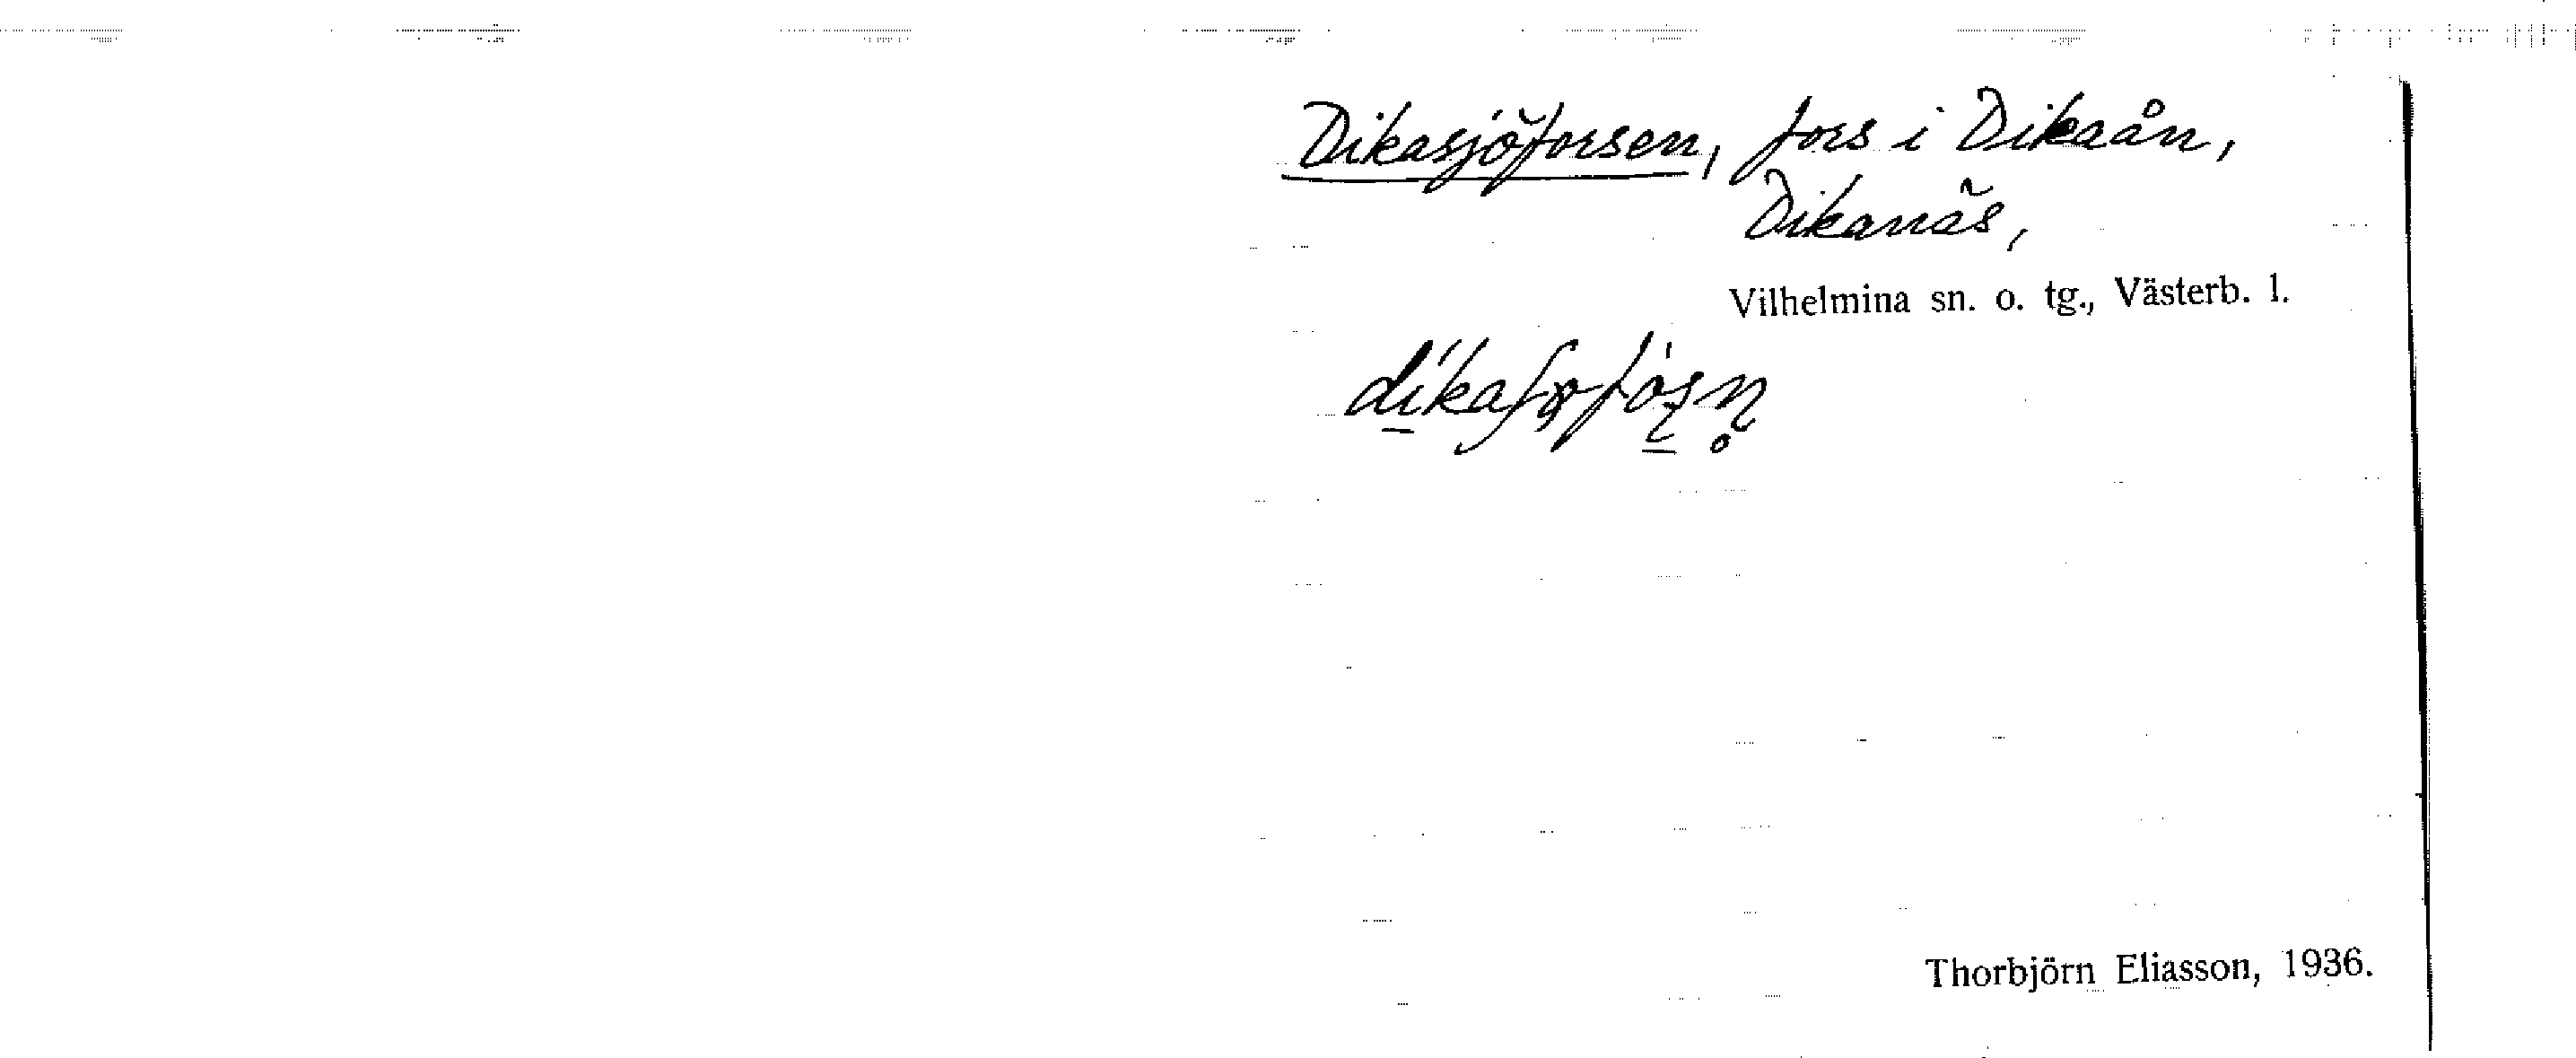 Dikasjöforsen, fors i Dikaån,
Dikanäs,
Vilhelmina sn. o. tg., Västerb. l.
Thorbjörn Eliasson, 1936.